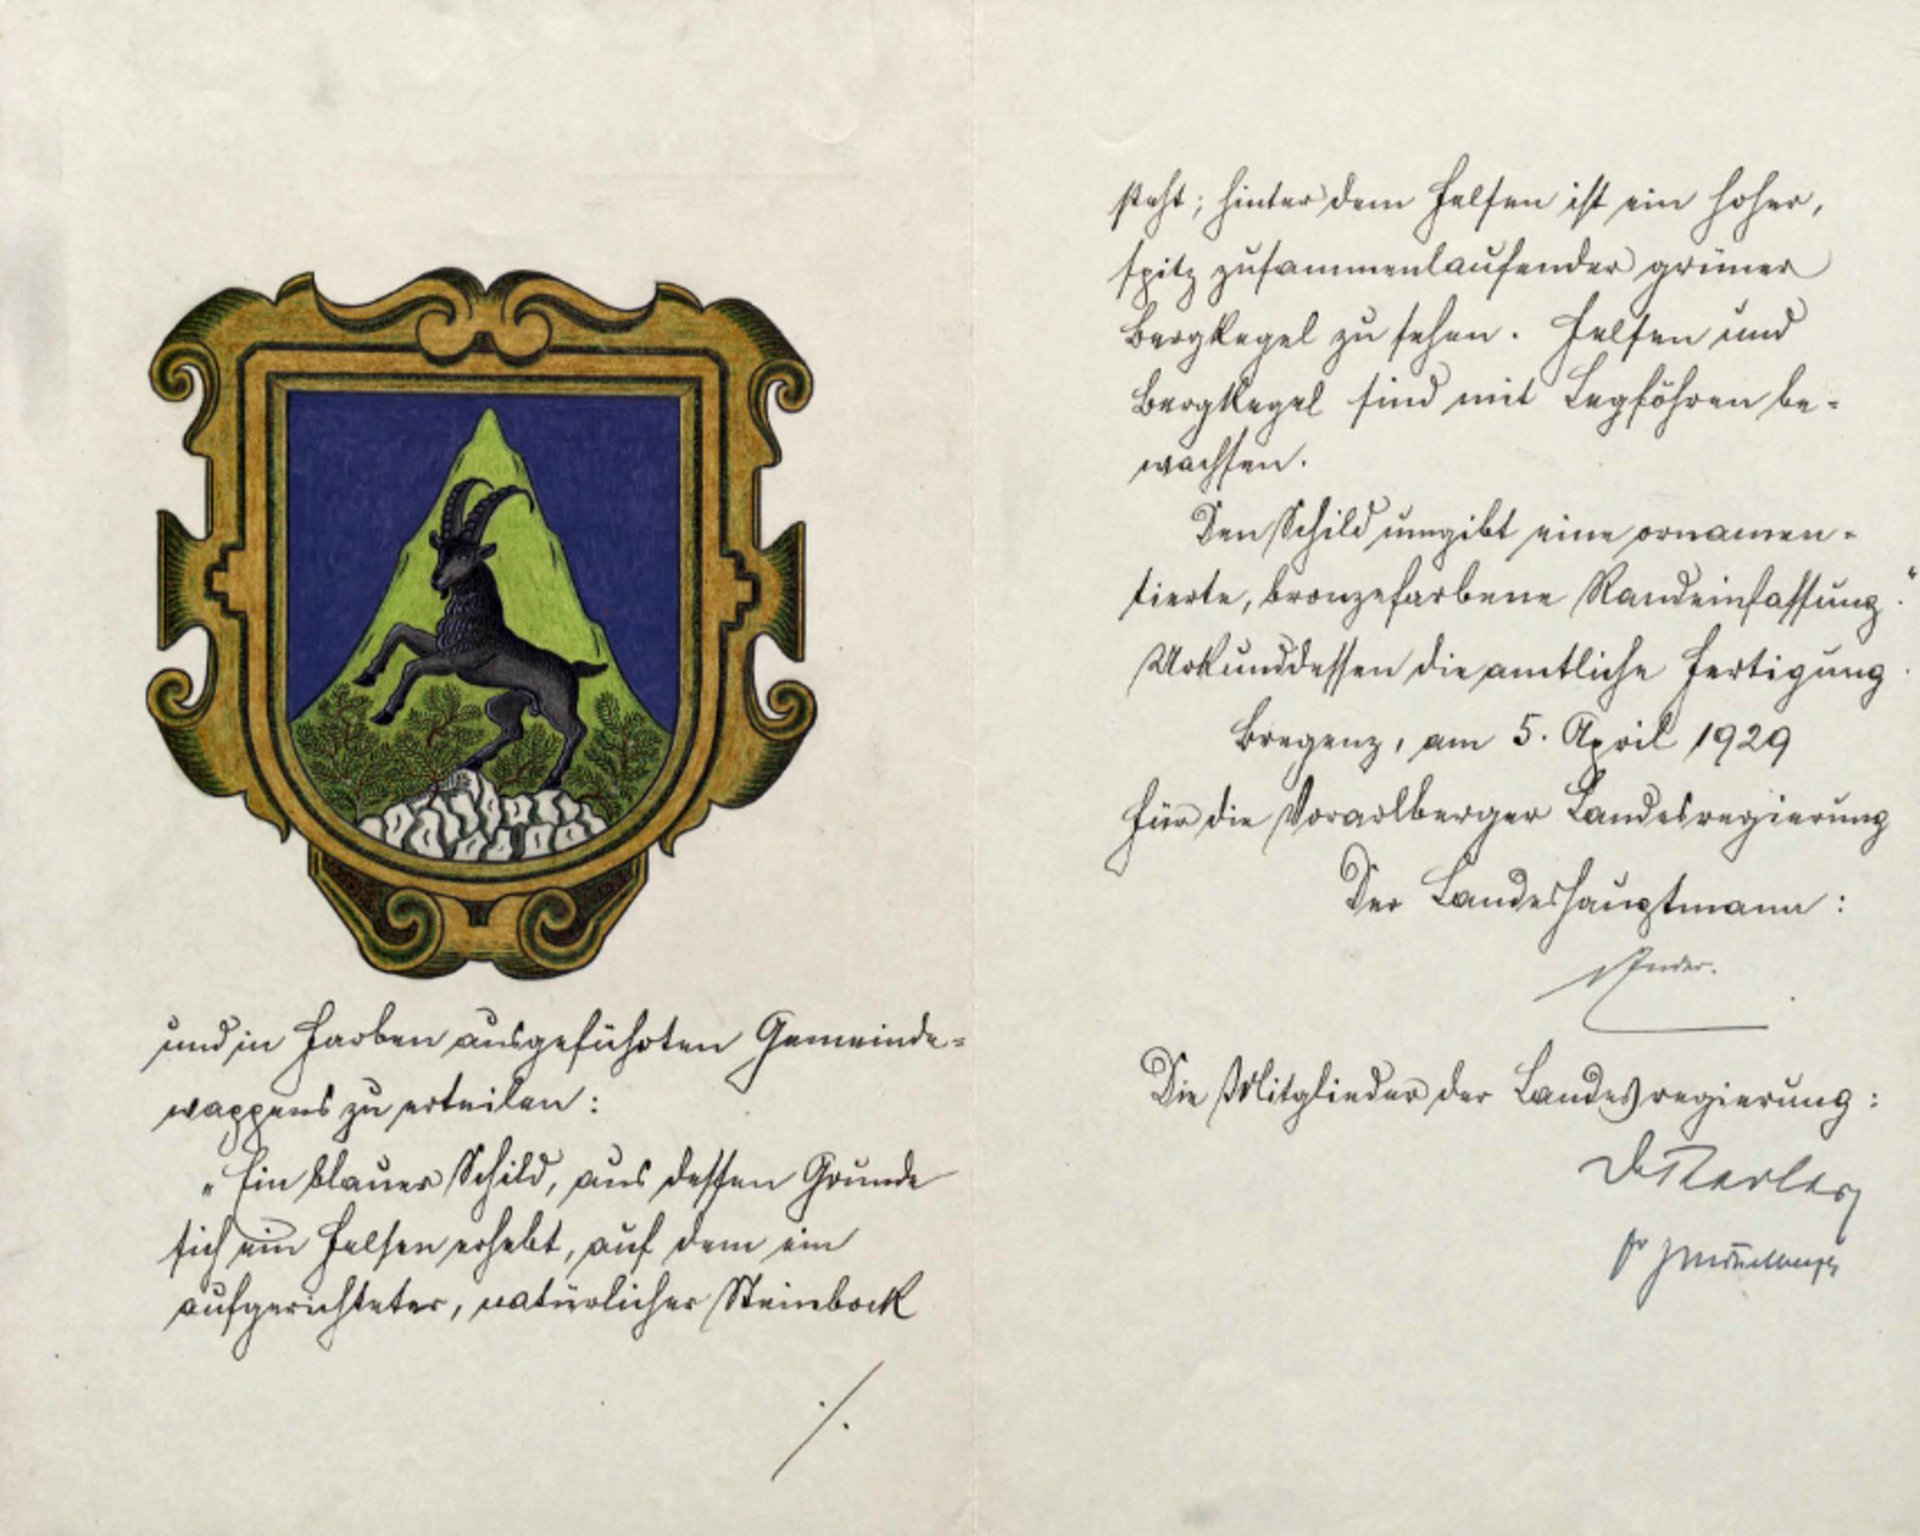 und in Farben ausgeführten Gemeinde-
wappens zu erteilen:
„Ein blauer Schild, aus dessen Grunde
sich ein Felsen erhebt, auf dem ein
aufgerichteter, natürlicher Steinbock
./.
steht; hinter dem Felsen ist ein hoher,
spitz zusammenlaufender grüner
Bergkegel zu sehen. Felsen und
Bergkegel sind mit Legföhren be-
wachsen.
Den Schild umgibt eine ornamen-
tierte, bronzefarbene Randeinfassung."
Urkunddessen die amtliche Fertigung.
Bregenz, am 5. April 1929
Für die Vorarlberger Landesregierung
Der Landeshauptmann:
Ender.
Die Mitglieder der Landesregierung: